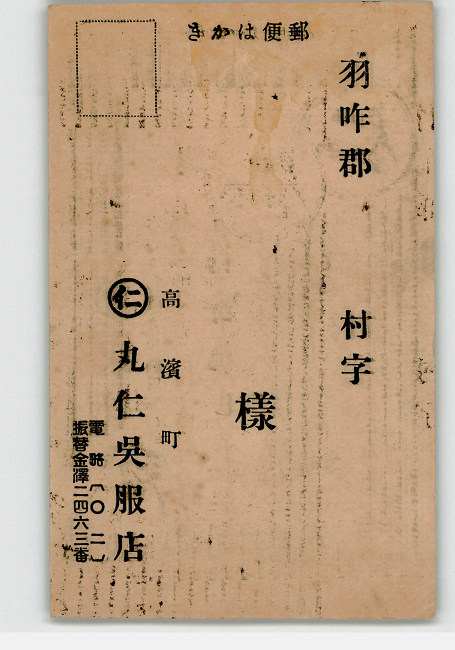 郵便はがき
羽咋郡 村字
樣
高濱町
仁 丸仁呉服店
電略(〇ニ)
振替金澤二四六三番